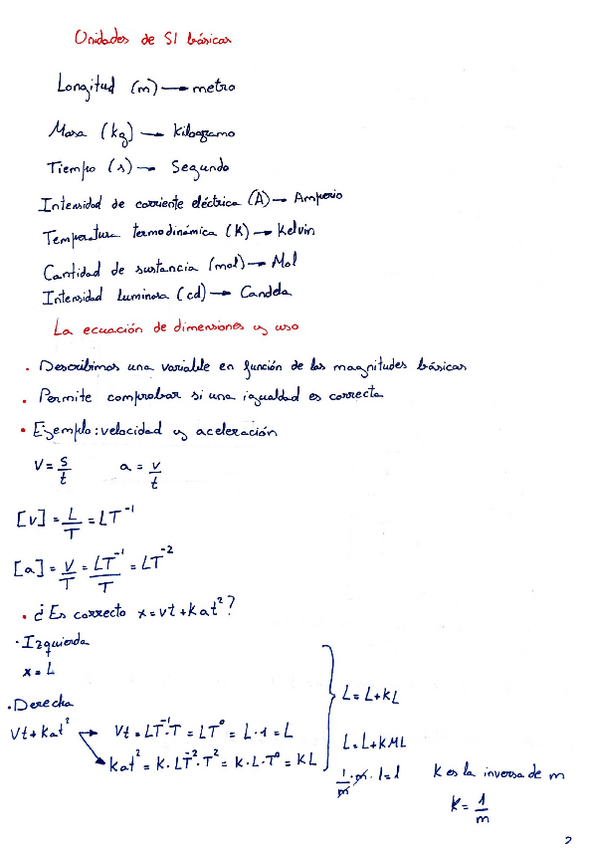 Unidades de SI básicas
Longitud (m) → metro
Masa (kg) → Kilogramo
Tiempo (s) → Segundo
Intensidad de corriente eléctrica (A) → Amperio
Temperatura termodinámica (K) → Kelvin
Cantidad de sustancia (mol) → Mol
Intensidad luminosa (cd) → Candela
La ecuación de dimensiones y uso
• Describimos una variable en función de las magnitudes básicas
• Permite comprobar si una igualdad es correcta
• Ejemplo: velocidad y aceleración
V = s/t a = v/t
[v] = L/T = LT⁻¹
[a] = V/T = LT⁻¹/T = LT⁻²
• ¿Es correcto x = vt + kat²?
· Izquierda
x = L
· Derecha
Vt + kat² → Vt = LT⁻¹·T = LT⁰ = L·1 = L
→ kat² = K·LT⁻²·T² = K·L·T⁰ = KL
L = L + KL
L = L + KML
1/m · m · 1 = 1
K es la inversa de m
K = 1/m
2